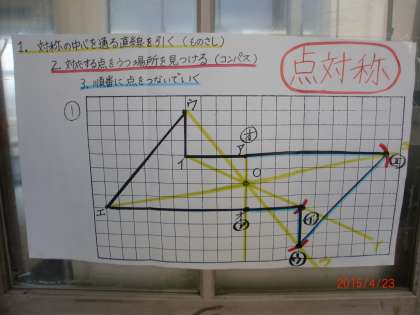 1. 対称の中心を通る直線を引く(ものさし)
2. 対応する点をうつ場所を見つける(コンパス)
3. 順番に点をつないでいく
点対称
①
ウ
ア
イ
O
エ
オ
2015/4/23